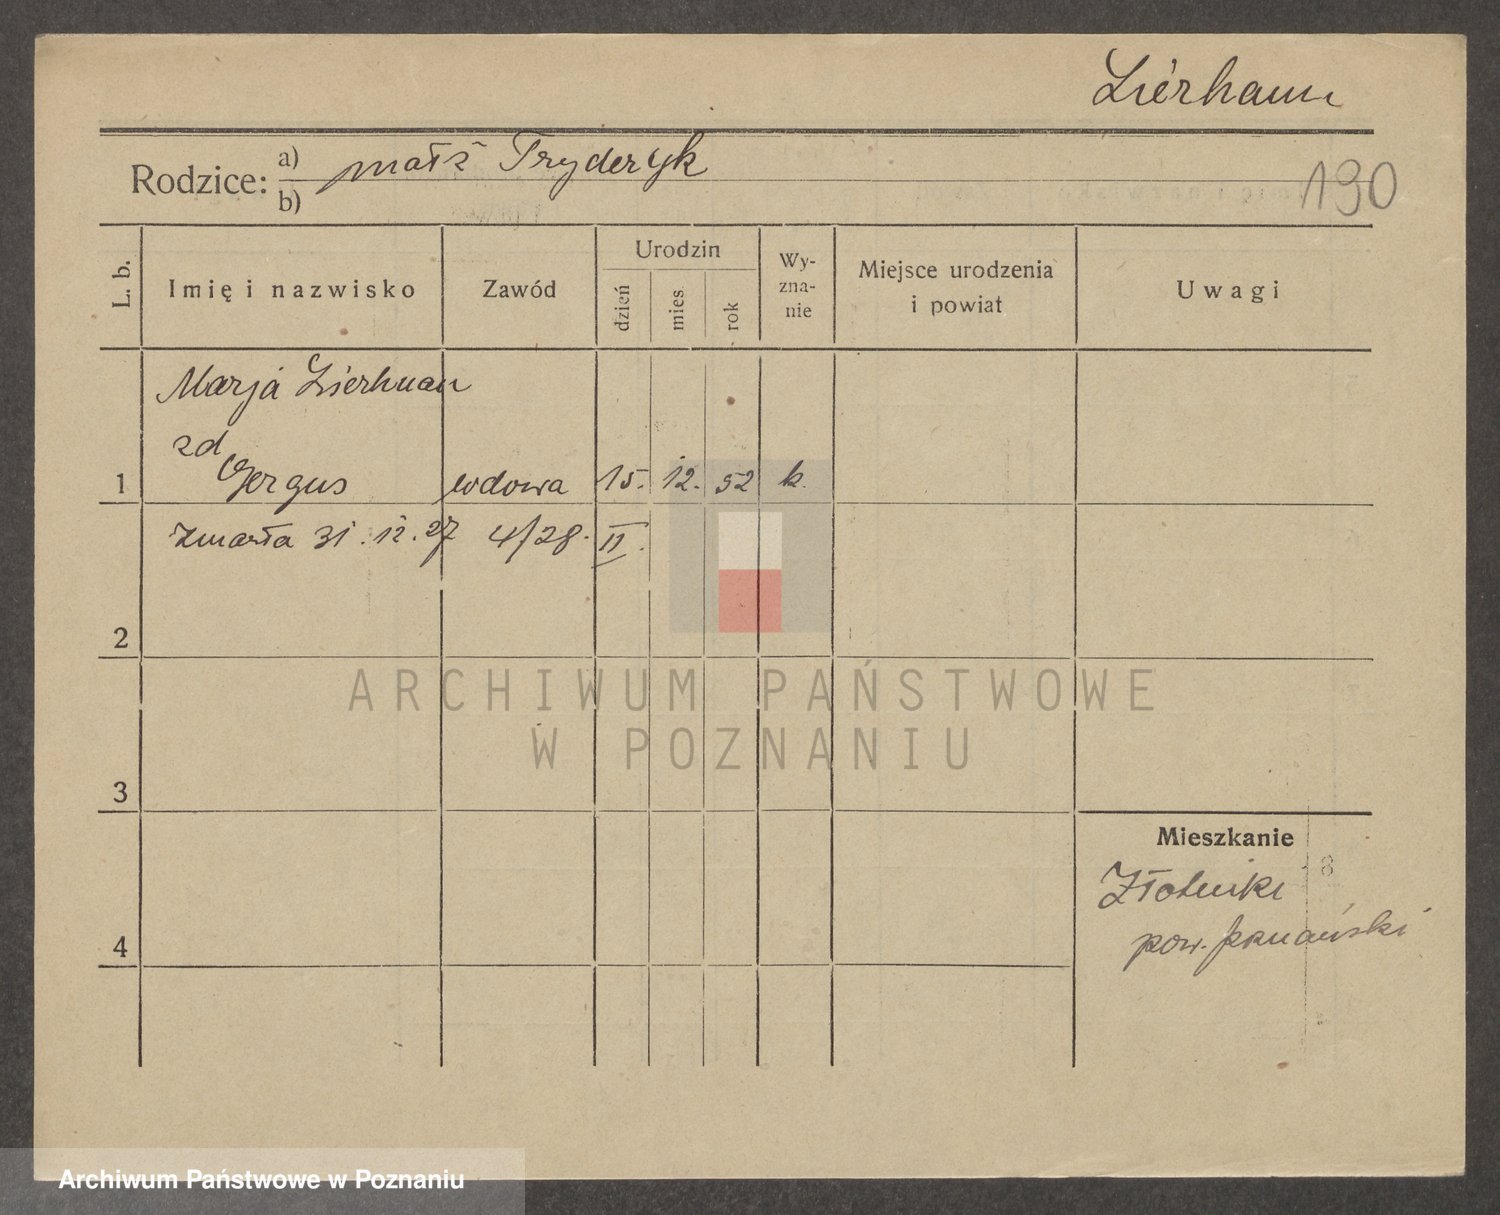 Zierhann
Rodzice: a) małż Fryderyk
b)
190
L. b.
Imię i nazwisko
Zawód
Urodzin
dzień
mies.
rok
Wy-
zna-
nie
Miejsce urodzenia
i powiat
Uwagi
Marja Zierhnan
zd
Gergus
1 wdowa 15. 12. 52 k.
zmarła 31.12.27 4/28. II.
2
3
4
Mieszkanie
8
Złotniki
pow. poznański
ARCHIWUM PAŃSTWOWE
W POZNANIU
Archiwum Państwowe w Poznaniu